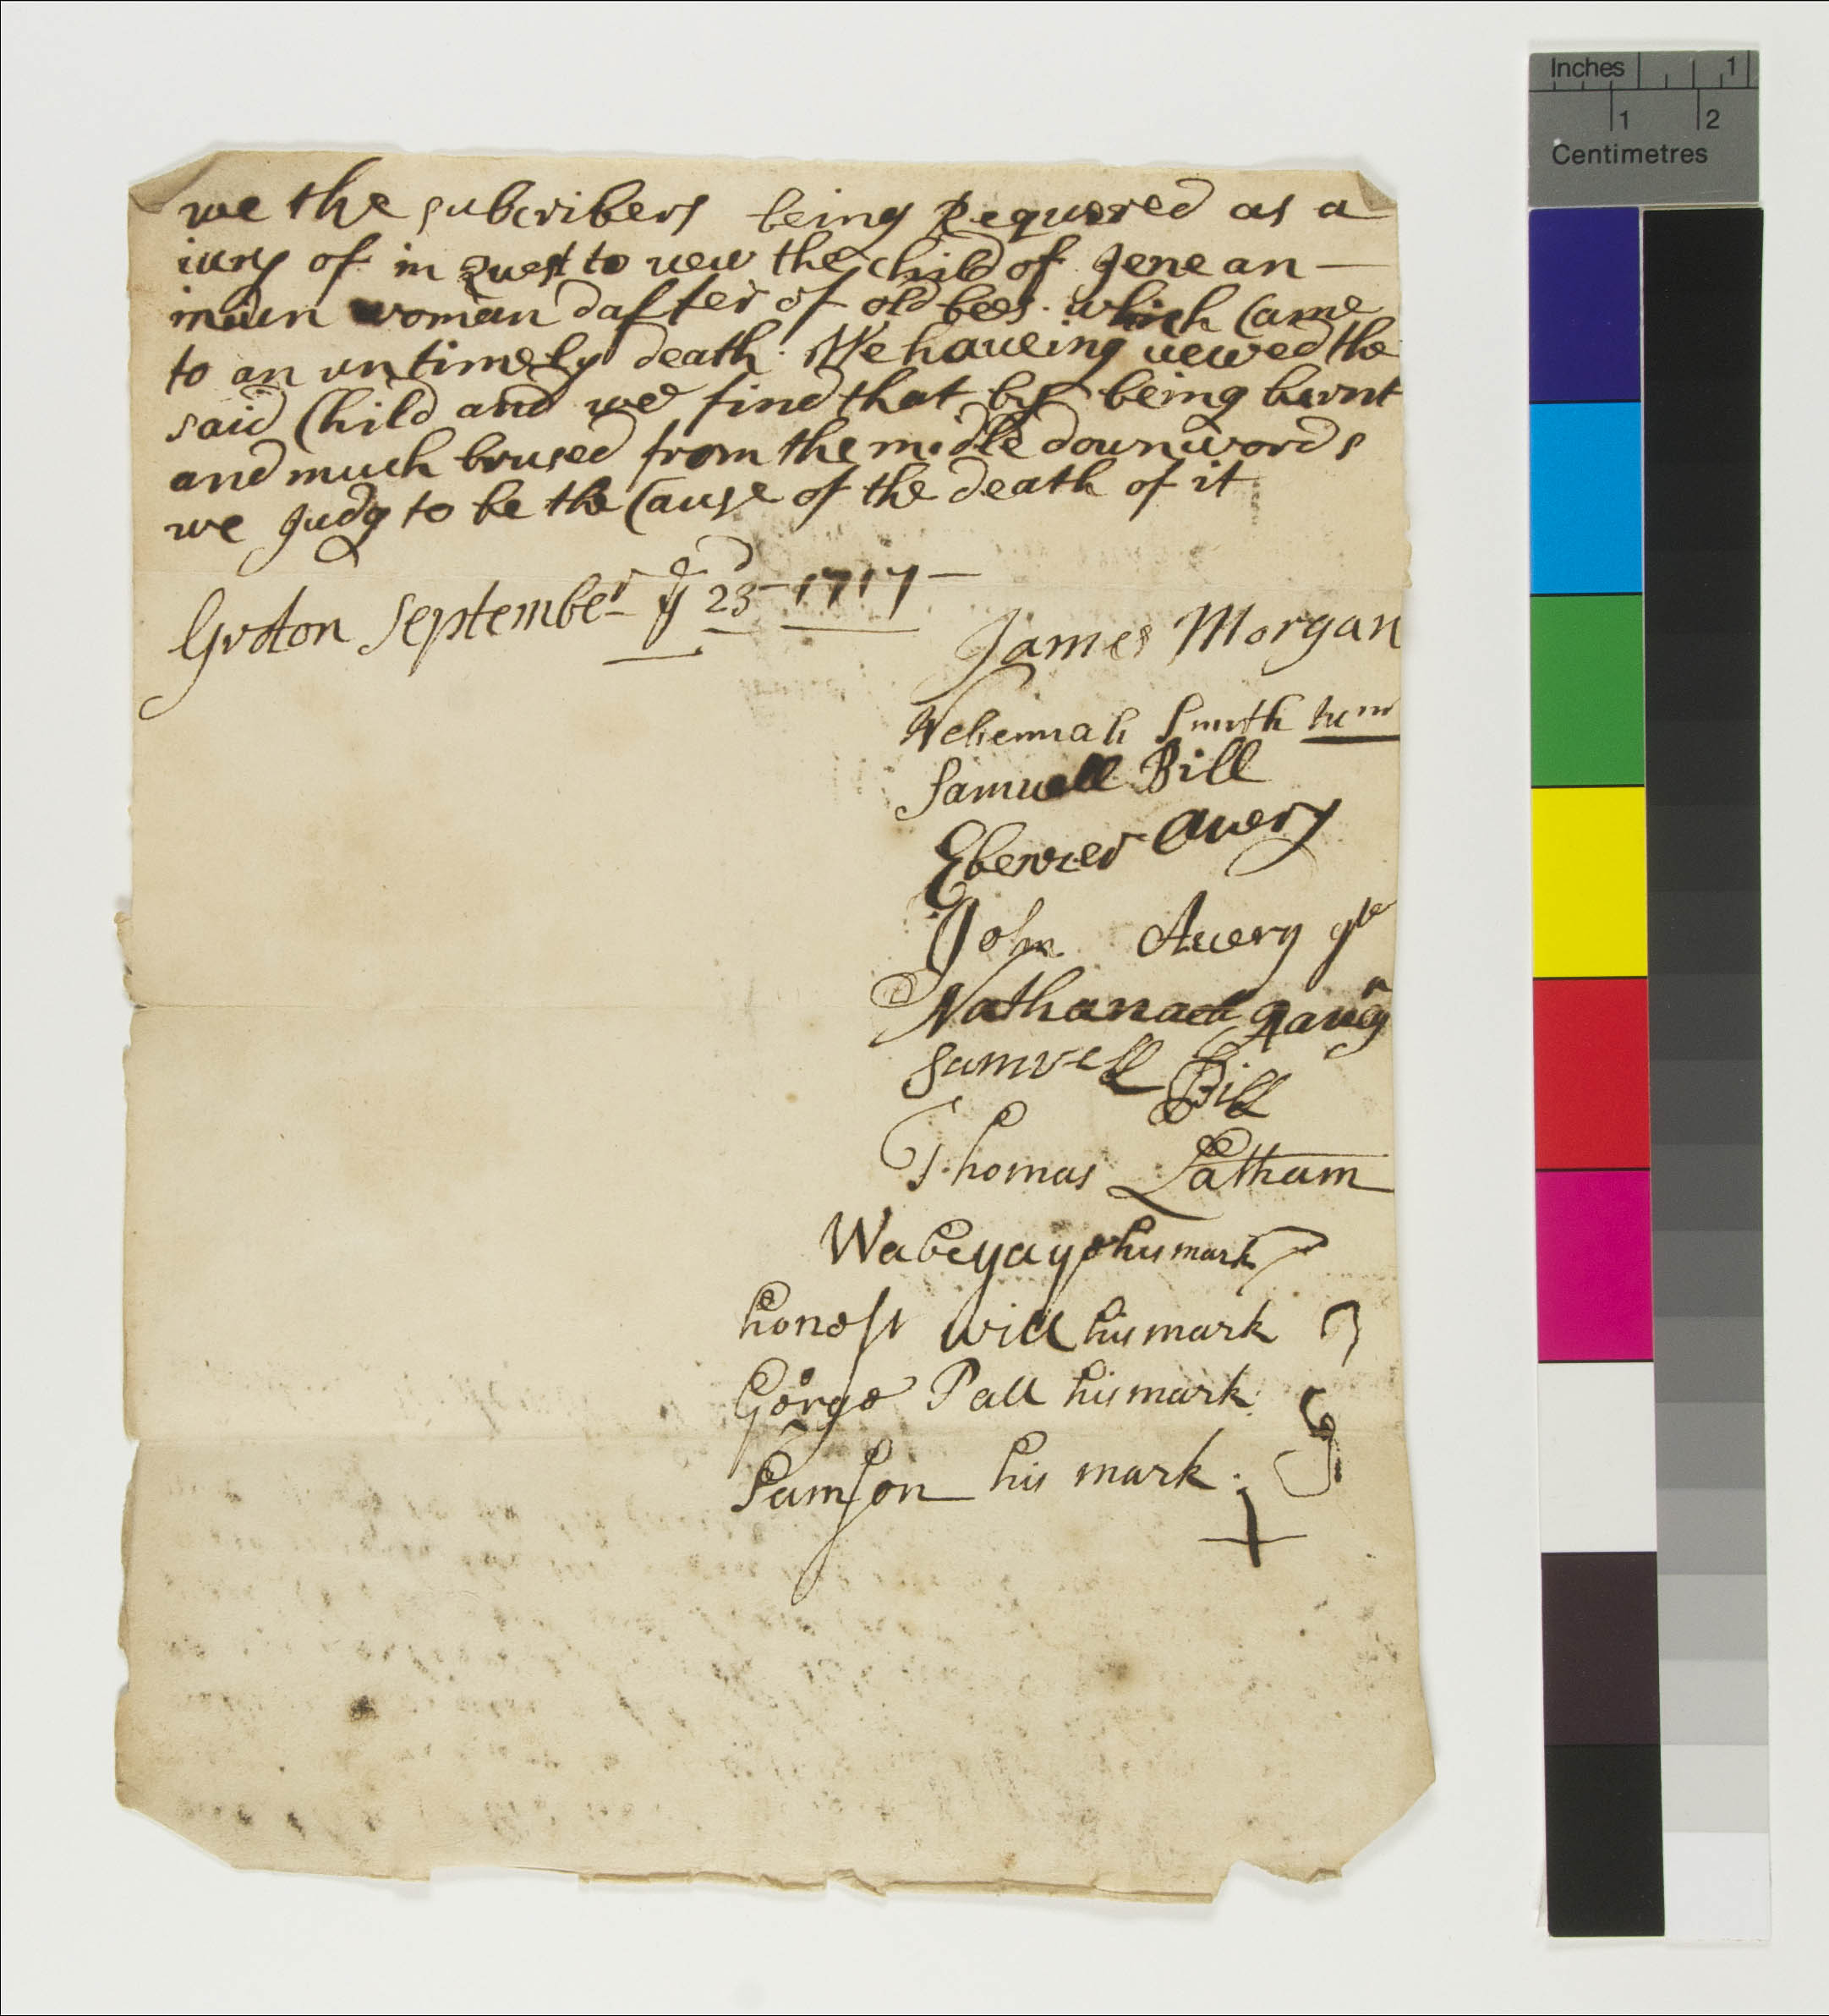 we the subcribers being Requered as a
iury of in quest to uew the child of Jene an —
indun woman dafter of old bees. which Came
to an untimely death. We haueing uewed the
said Child and we find that by being burnt
and much brused from the midle downwords
we Judg to be the Cause of the death of it
Groton September ye 23d — 1717 —
James Morgan
Nehemiah Smith iunr
Samuell Bill
Ebenezer Avery
John Avery
Nathanaell
Samvell Bill
Thomas Latham
Wabeyayo his mark
honest will his mark
Gorge Pall his mark
Samson his mark
Inches 1
1 2
Centimetres